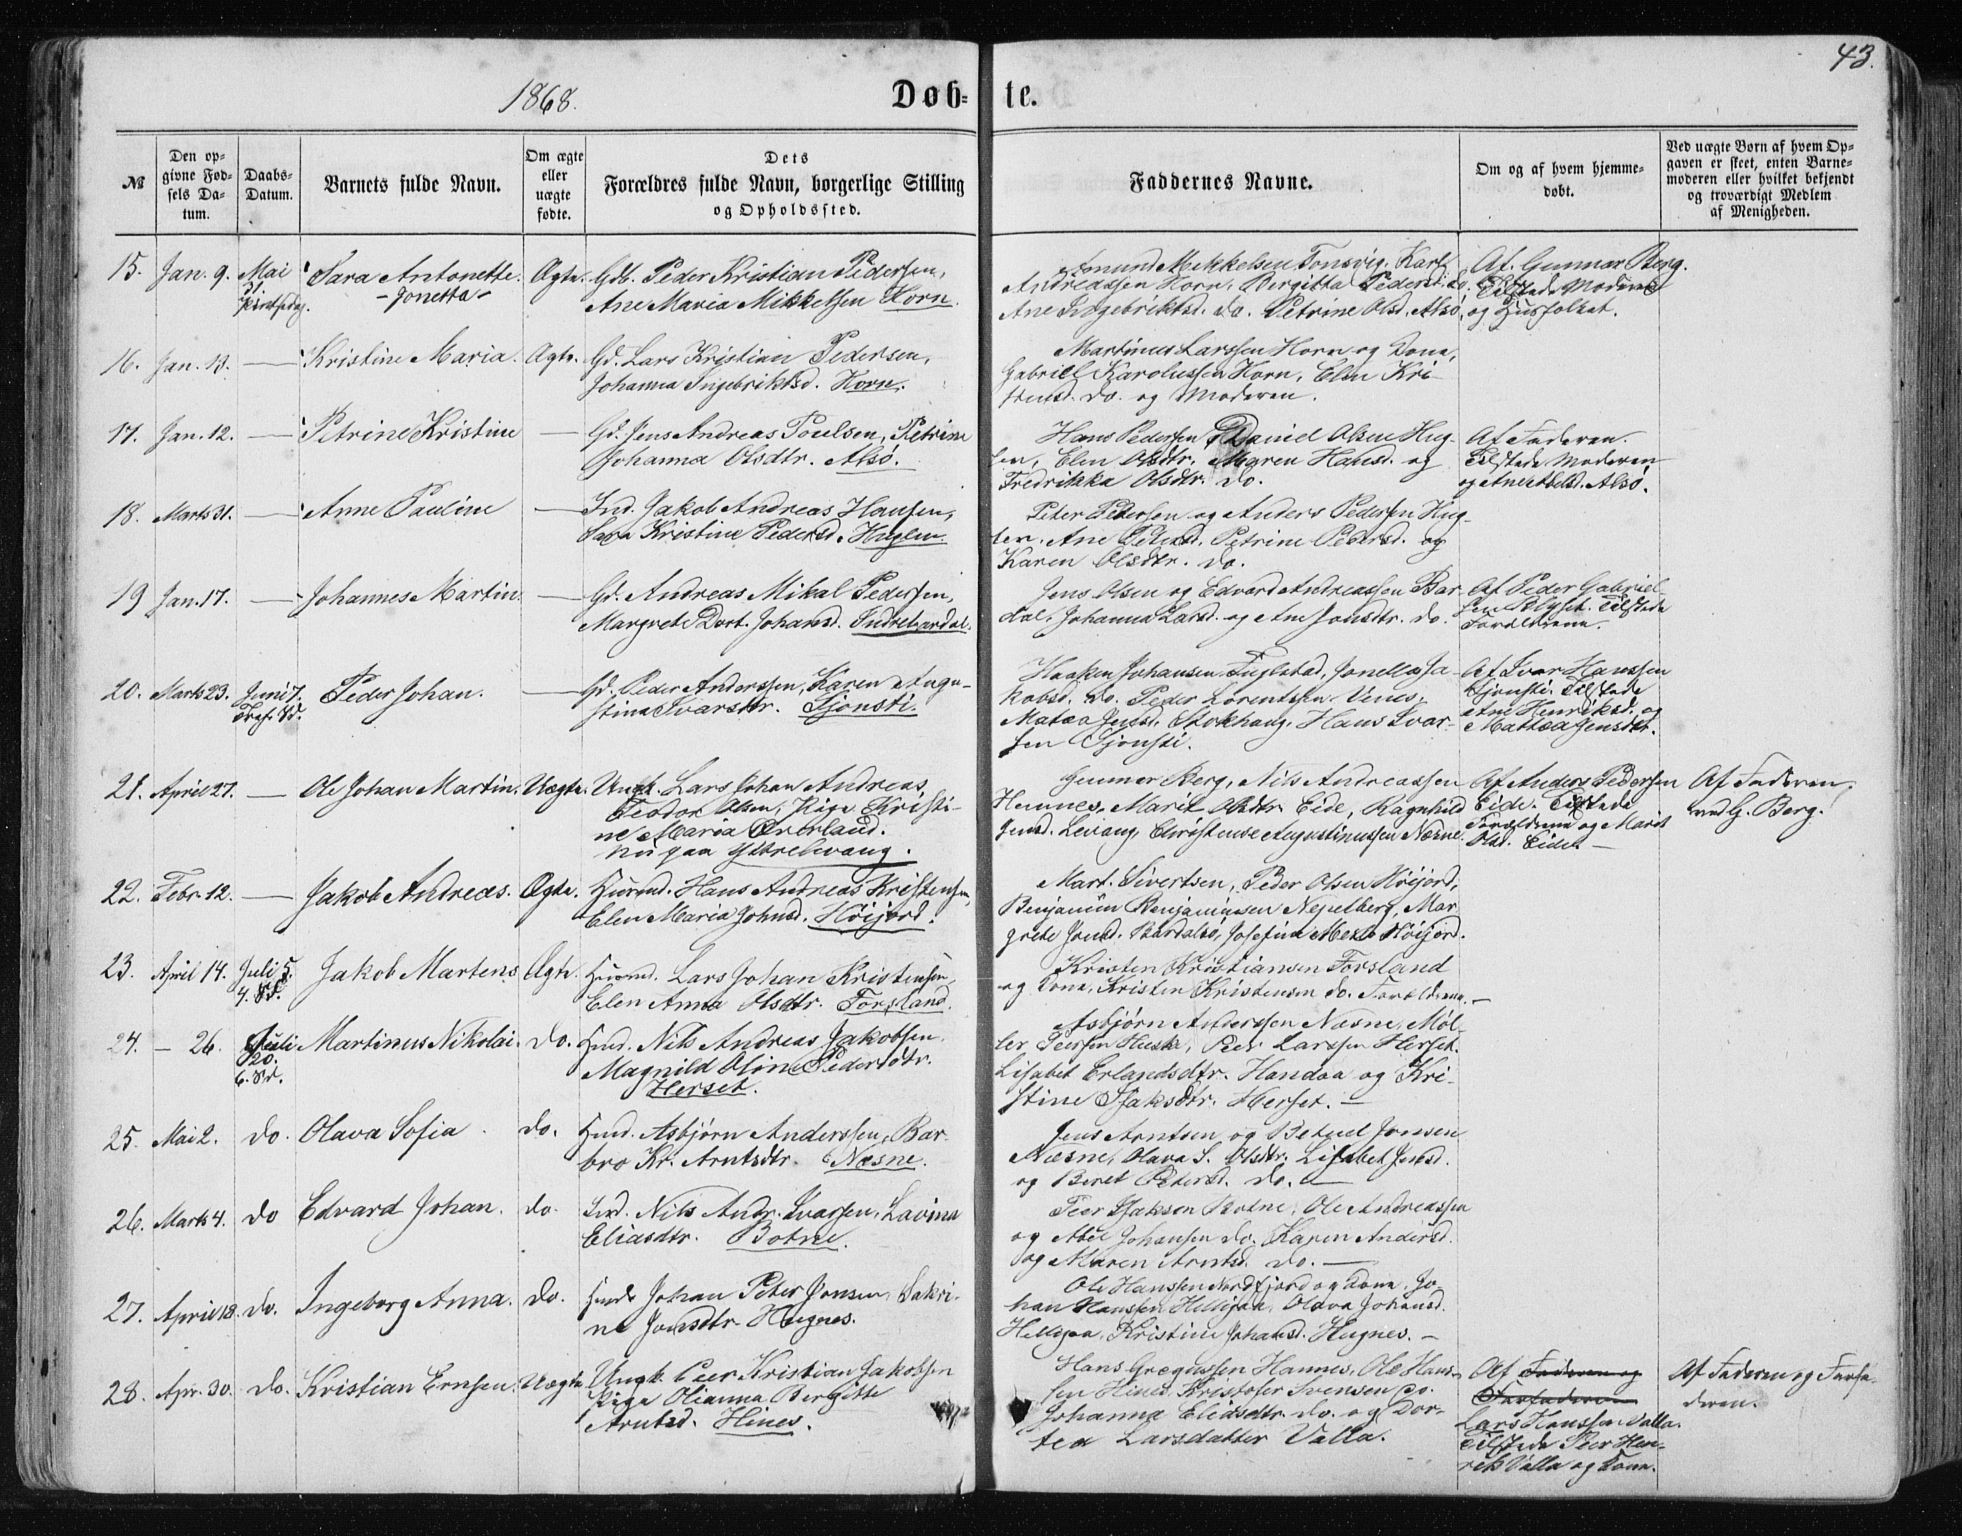 43.
1868.
Døb-
te.
№
Den op-
givne Fød-
sels Da-
tum.
Daabs-
Datum.
Barnets fulde Navn.
Om ægte
eller
uægte
fødte.
Dets
Forældres fulde Navn, borgerlige Stilling
og Opholdssted.
Faddernes Navne.
Om og af hvem hjemme-
døbt.
Ved uægte Børn af hvem Op-
gaven er skeet, enten Barne-
moderen eller hvilket bekjendt
og troværdigt Medlem
af Menigheden.
15. Jan. 9. Mai
31.
Pintsedag.
Sara Antonette
- Jonetta -
Ægte. Gdb. Peder Kristian Pedersen,
Ane Maria Mikkelsen Horn.
Amund Mikkelsen Tonsvig, Karl
Andreassen Horn, Birgitta Pedersd. do.
Ane Ingebriktsd. do. Petrine Olsd. Alsø.
Af Gunnar Berg.
Tilstede Moderen
og Husfolket.
16. Jan. 13. — Kristine Maria. Ægte. Gd. Lars Kristian Pedersen,
Johanna Ingebriktsd. Horn.
Martinus Larssen Horn og Kona,
Gabriel Karolussen Horn, Elen Kri-
stensd. do. og Moderen.
17. Jan. 12. — Petrine Kristine — Gd. Jens Andreas Poulsen, Petrine
Johanna Olsdtr. Alsø.
Hans Pedersen Daniel Olsen Hug-
len, Elen Olsdtr. Maren Hansd. og
Fredrikka Olsdtr. do.
Af Faderen.
Tilstede Moderen
og Ane Abelsd. Alsø.
18. Marts 31. — Anne Pauline — Ind. Jakob Andreas Hansen,
Sara Kristine Pedersd. Huglen.
Peter Petersen og Anders Pedersen Hug-
len. Ane Petersd. Petrine Pedersd. og
Karen Olsdtr. do.
19 Jan. 17. — Johannes Martin. — Gd. Andreas Mikal Pedersen,
Margrete Dort. Johansd. Indrebardal.
Jens Olsen og Edvard Andreassen Bar-
dal, Johanna Larsd. og Ane Jonsdtr. do.
Af Peder Gabriel-
sen Tilstede
Forældrene.
20. Marts 23. Juni 7.
Tref. Sd.
Peder Johan. — Gd. Peder Anderssen, Karen Augu-
stina Ivarsdtr. Sjonsti.
Haaken Johansen Fuglstad, Jonella Ja-
kobsd. do. Peder Lorentsen Venes,
Matea Jensd. Stokhaug, Hans Ivar-
sen Sjonsti.
Af Ivar Hanssen
Sjonsti. Tilstede
Ane Henriksd. og
Mathea Jensdtr.
21. April 27. — Ole Johan Martin. Uægte. Ungk. Lars Johan Andreas
Teodor Olsen, Pige Kristi-
ne Maria Overland.
nu paa Ytrelevang.
Gunnar Berg, Nils Andreassen
Hemnes, Marit Olsdtr. Eide, Ragnhild
Jensd. Levang, Christense Augustinussen Næsne.
Af Anders Pedersen
Eide. Tilstede
Forældrene og Marit
Olsd. Eide. —
Af Faderen,
ved G. Berg.
22. Febr. 12. — Jakob Andreas. Ægte. Husmd. Hans Andreas Kristensen,
Elen Maria Johnsd. Høijord.
Mart. Sivertsen, Peder Olsen Høijord,
Benjamin Benjaminsen Nepelberg, Mar-
grete Jonsd. Bardalsø, Josefine Høijord.
23. April 14. Juli 5.
4. Sd.
Jakob Martens Ægte. Husmd. Lars Johan Kristensen,
Elen Anna Olsdtr. Forsland.
Kristen Kristiansen Forsland
og Kona, Kristen Kristensen do. Forældrene. —
24. — 26. Juli
20.
6. Sd.
Martinus Nikolai. do. Husd. Nils Andreas Jakobsen.
Magnild Oline Pedersdtr.
Herset.
Asbjørn Anderssen Næsne, Møl-
ler Peersen Peer Larssen Herset.
Lisabet Erlandsdtr. Handaa og Kri-
stine Isaksdtr. Herset. —
25. Mai 2. do. Olava Sofia. do. Husd. Asbjørn Anderssen, Bar-
bro Kr. Arntsdtr. Næsne.
Jens Arntsen og Betuel Jonsen
Næsne, Olava S. Olsdtr. Lisabet Jensd.
og Beret Petersd. do. —
26. Marts 4. do Edvard Johan. do. Ind. Nils Andr. Ivarsen, Lavina
Eliasdtr. Botne.
Peer Isaksen Botne, Ole Andreassen
og Abel Johansen do. Karen Andersd.
og Maren Arntsd. do. —
27. April 18. do. Ingeborg Anna. do. Husd. Johan Peter Jonsen, Sakri-
ne Jonsdtr. Hugnes.
Ole Hanssen Nordfjord og Kona, Jo-
han Hanssen Hellgaa, Olava Johansd.
Hellgaa, Kristine Johansd. Hugnes. —
28. Apr. 30. do. Kristian Ernsen. Uægte Ungk. Peer Kristian Jakobsen
Pige Olianna Bergitte
Arntsd. Hines.
Hans Gregussen Hannes, Ole Hans-
sen Hines Kristofer Svensen do.
Johanna Eliasdtr. do. og Dor-
tea Larsdatter Valla.
Af Faderen og
Farfaderen
Lars Hanssen Valla.
Tilstede Peer Hen-
riks Valla og Kona.
Af Faderen og Farfa-
deren.